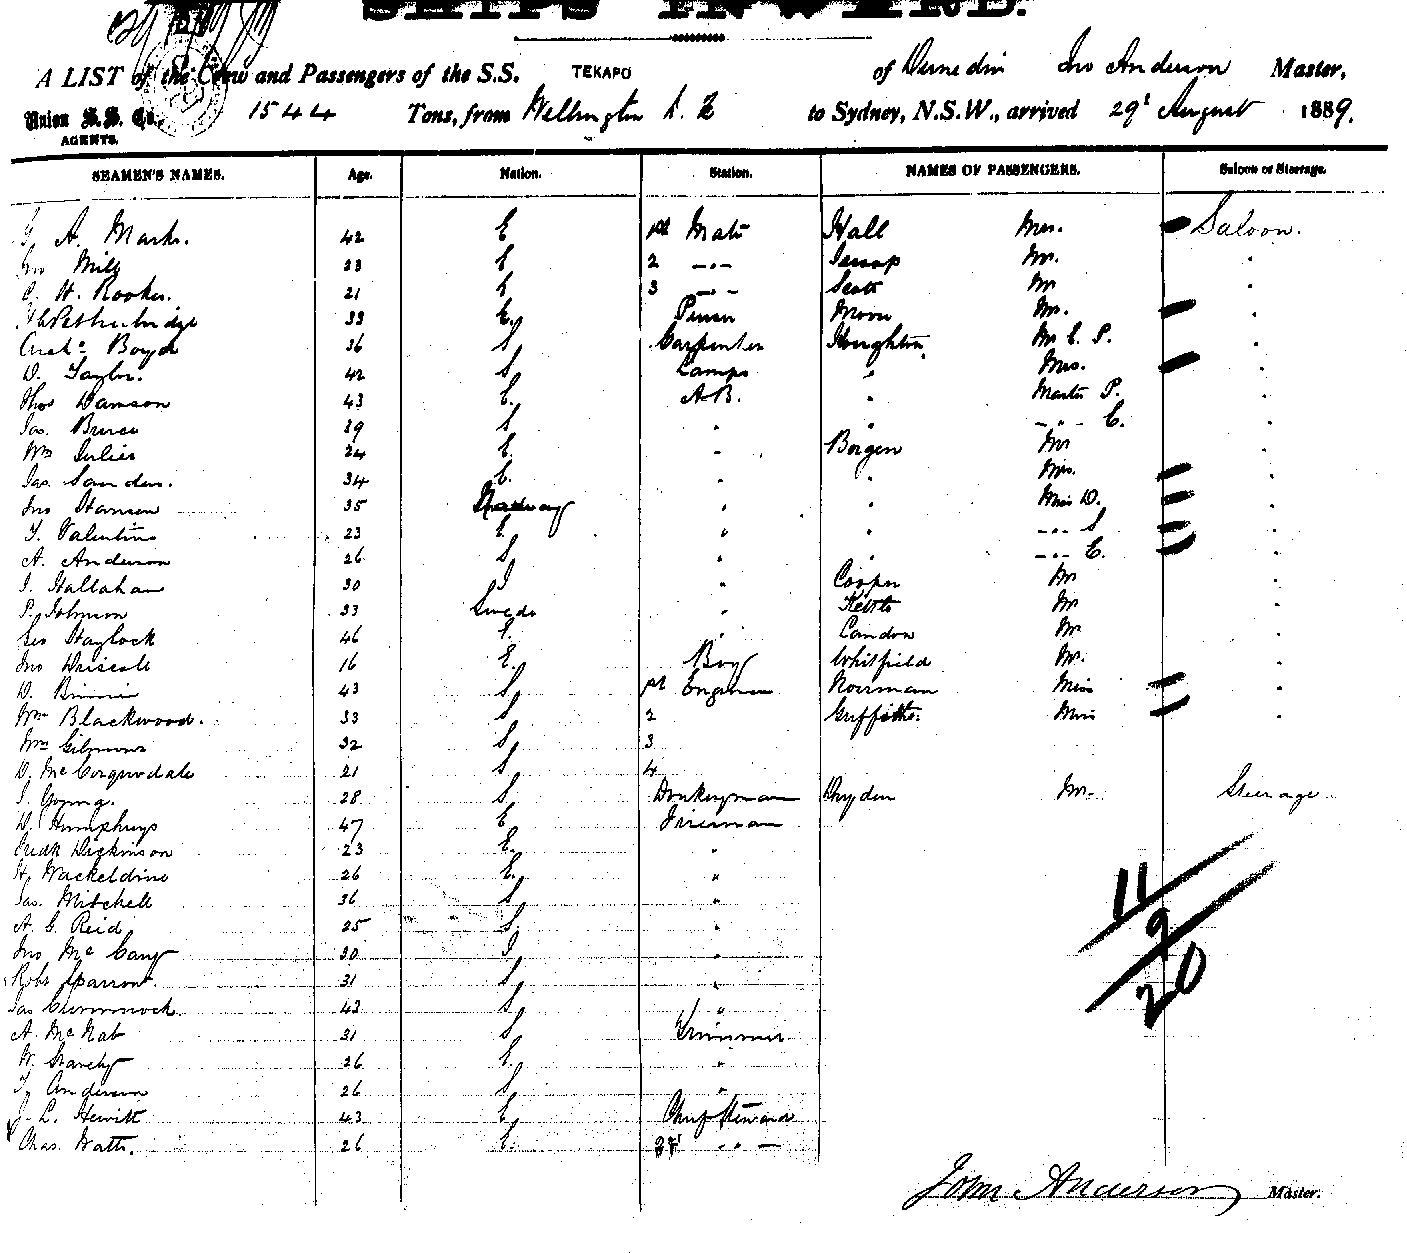 SHIPS INWARD.
A LIST of the Crew and Passengers of the S.S. TEKAPO of Dunedin Jno Anderson Master,
Union S.S. Co., 1544 Tons, from Wellington N. Z to Sydney, N.S.W., arrived 29' August 1889.
AGENTS.
SEAMEN'S NAMES. Age. Nation. Station. NAMES OF PASSENGERS. Saloon or Steerage.
A. Marks. 42 E 1st Mate Hall Mrs. Saloon.
Jno Mills 23 E 2 -"- Jessop Mr. "
W. Rooker. 21 E 3 -"- Scott Mr "
Petherbridge 33 E. Purser Moon Mr. "
Archd Boyd 36 S, Carpenter Houghton, Mr C. P. "
D. Taylor. 42 S, Lamps " Mrs. "
Thos Dawson 43 E. A.B. " Master P. "
Jas. Bruce 39 S " " -"- C. "
Wm Julier 24 E. " Borgen Mr "
Jas. Sanders. 34 E. " " Mrs. "
Jno Hansen 35 Norway " " Miss D. "
T. Valentine 23 E. " " -"- S "
A. Anderson 26 S, " " -"- E. "
J. Hallahan 30 I " Cooper Mr "
P. Johnson 33 Swede " Kettle Mr "
Geo Haylock 46 E. " Landon Mr "
Jno Driscoll 16 E. Boy Whitfield Mr. "
D. Binnie 43 S, 1st Engineer Norman Miss "
Wm Blackwood. 33 S, 2 Griffiths. Miss "
Wm Gilmour 32 S, 3
D. McCorquodale 21 S, 4
J. Young. 28 S, Donkeyman Dryden Mr. Steerage
D. Humphrys 47 E Fireman
Fredk Dickinson 23 E. "
H. Wackeldine 26 E. "
Jas. Mitchell 36 S, "
A. G. Reid 25 S, "
Jno Mc 30 I "
Robt Sparrow. 31 S, "
Jas Cummock 43 S, "
A. McNab 31 S, Trimmer
W. 26 E. "
Anderson 26 S, "
L. Hewitt 43 E. Chief Steward
Chas. Watts. 26 E. " " -
11
9
20
John Anderson Master.